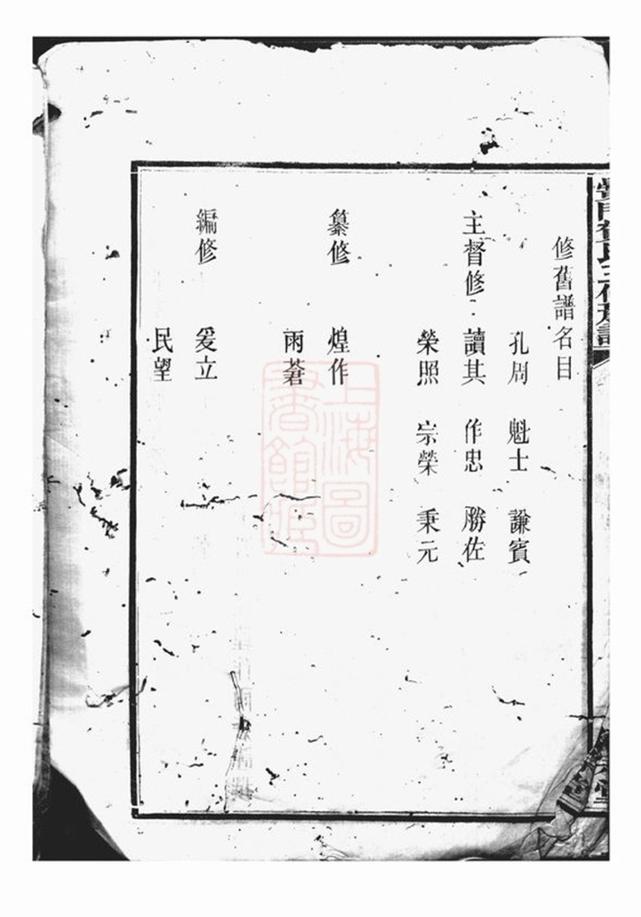 修舊譜名目
孔周 魁士 謙賓
主督修 讀其 作忠 勝佐
榮照 宗榮 秉元
纂修 煌作
雨蒼
編修 爰立
民望
上海圖
書館藏